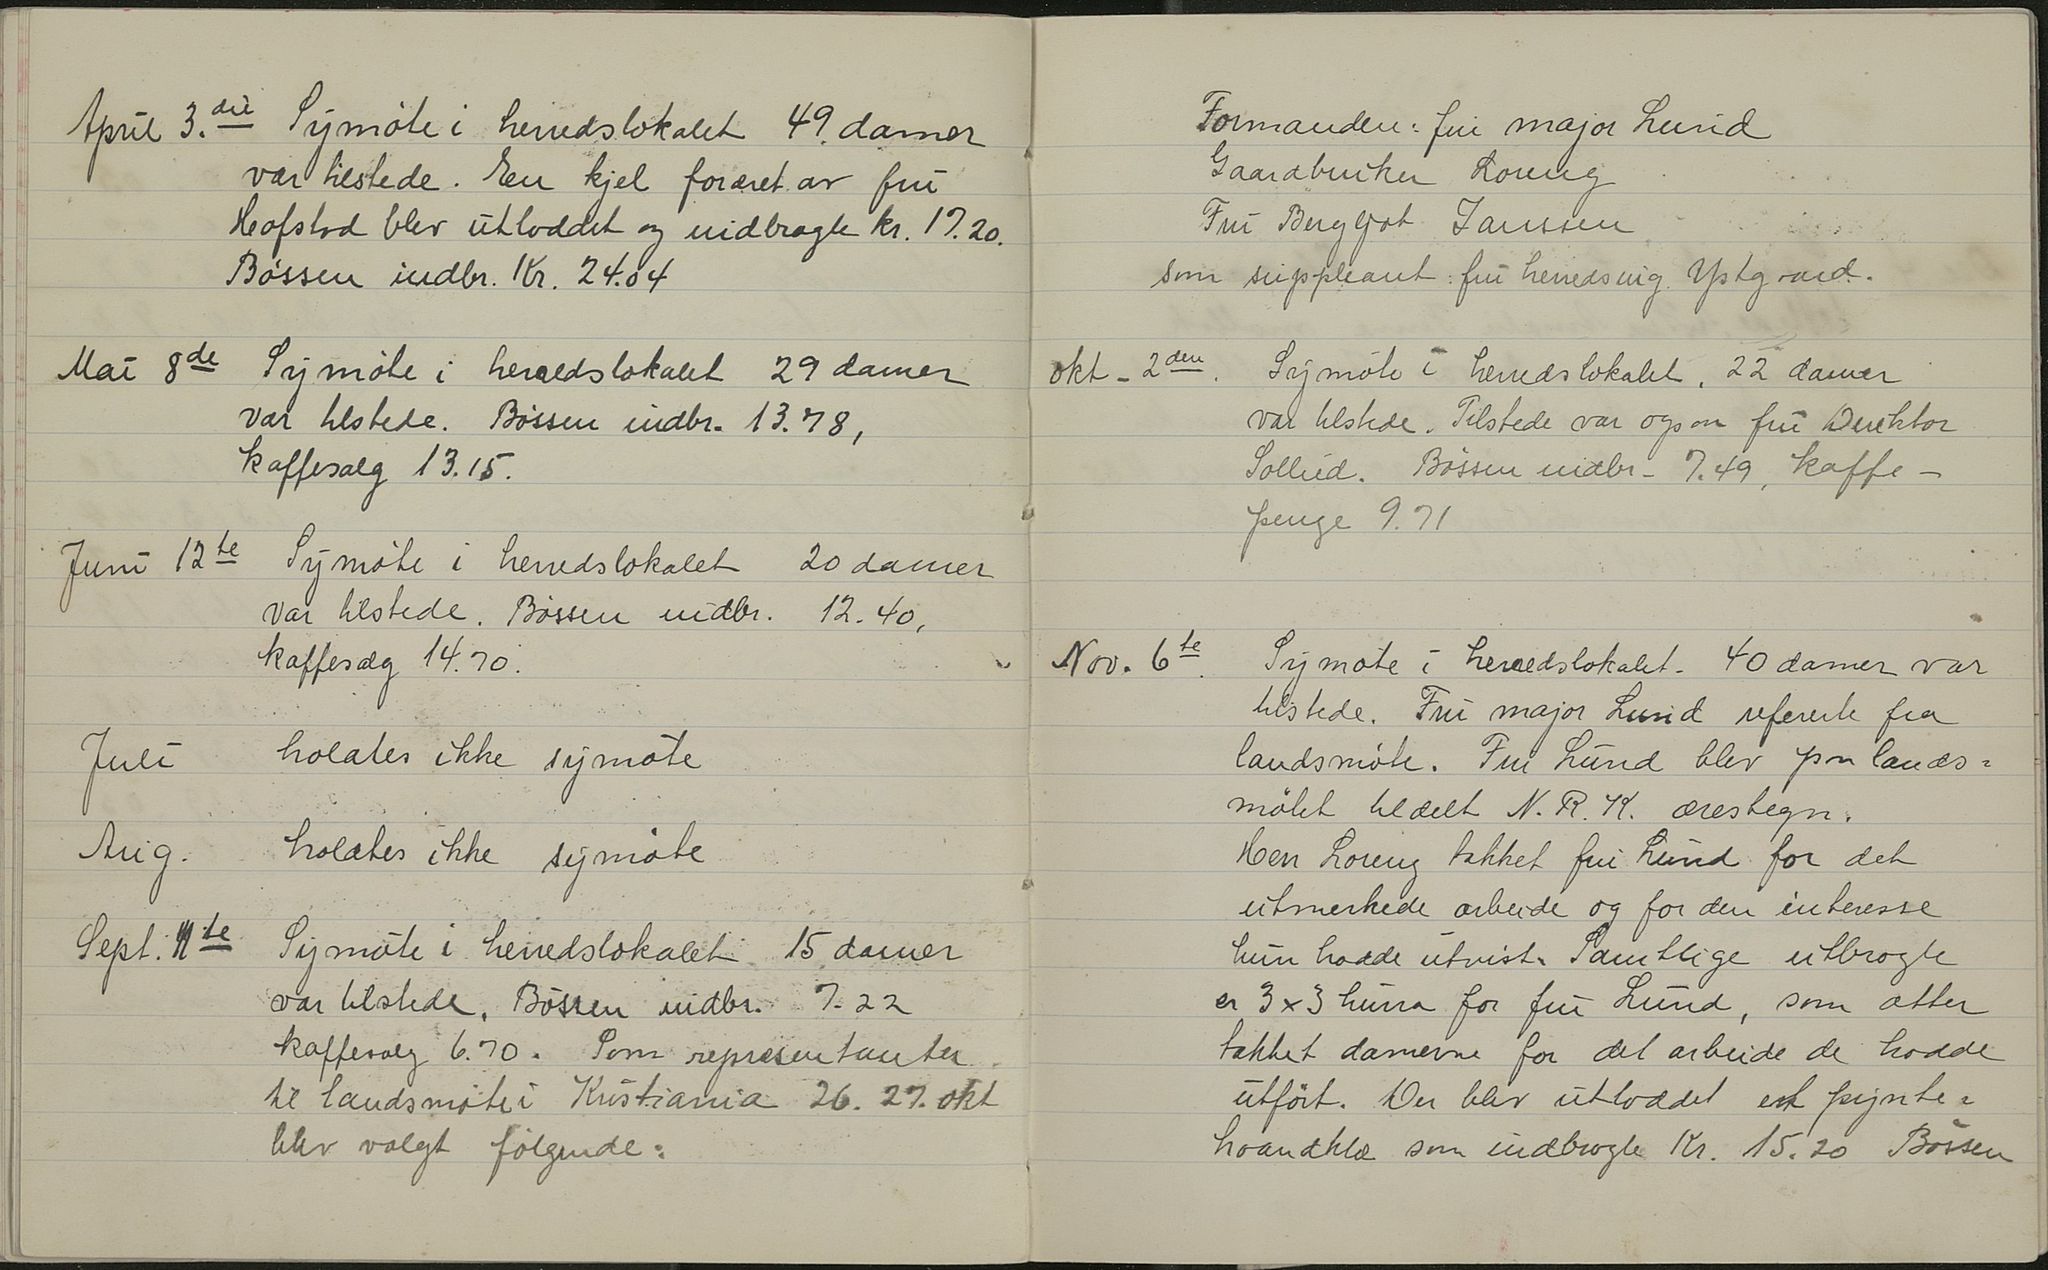 April 3.die Symøte i herredslokalet 49 damer
var tilstede. En kjel foræret av fru
Hofstad blev utloddet og indbragte kr. 17.20.
Bøssen indbr. Kr. 24.04
Mai 8de Symøte i herredslokalet 29 damer
var tilstede. Bøssen indbr. 13.78,
kaffesalg 13.15.
Juni 12te Symøte i herredslokalet 20 damer
var tilstede. Bøssen indbr. 12.40,
kaffesalg 14.70.
Juli holdtes ikke symøte
Aug. holdtes ikke symøte
Sept. 11te Symøte i herredslokalet 15 damer
var tilstede. Bøssen indbr. 7.22
kaffesalg 6.70. Som representanter
til landsmøte i Kristiania 26. 27. okt
blev valgt følgende:
Formanden: fru major Lund
Gaardbruker Loreng
Fru Bergljot Janssen
som suppleant: fru herredsing. Ystgaard.
okt - 2den. Symøte i herredslokalet. 22 damer
var tilstede. Tilstede var ogsaa fru Direktor
Sollied. Bøssen indbr - 7.49, kaffe-
penge 9.71
Nov. 6te. Symøte i herredslokalet - 40 damer var
tilstede. Fru major Lund refererte fra
landsmøte. Fru Lund blev paa lands=
møtet tildelt N. R. K. ærestegn.
Herr Loreng takket fru Lund for det
utmerkede arbeide og for den interesse
hun hadde utvist. Samtlige utbragte
er 3x3 hurra for fru Lund, som atter
takket damerne for det arbeide de hadde
utført. Der blev utloddet et pynte=
haandklæ som indbragte Kr. 15.20 Bøssen